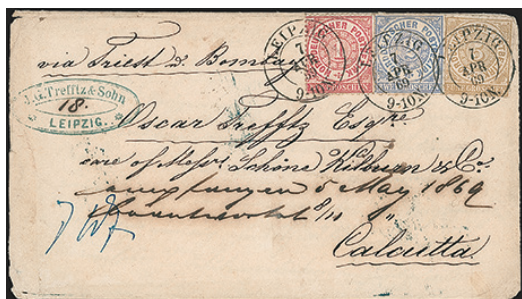 via Triest & Bombay
LEIPZIG
7
APR
69
9-10N.
LEIPZIG
7
APR
69
9-10N.
LEIPZIG
7
APR
69
9-10N.
NORDDEUTSCHER POST
J.G. Trefftz & Sohn
18.
LEIPZIG.
Oscar Trefftz Esqre
care of Messrs Schöne Kilburn & Co.
empfangen 5 May 1869
beantwortet 8/11 "
Calcutta.